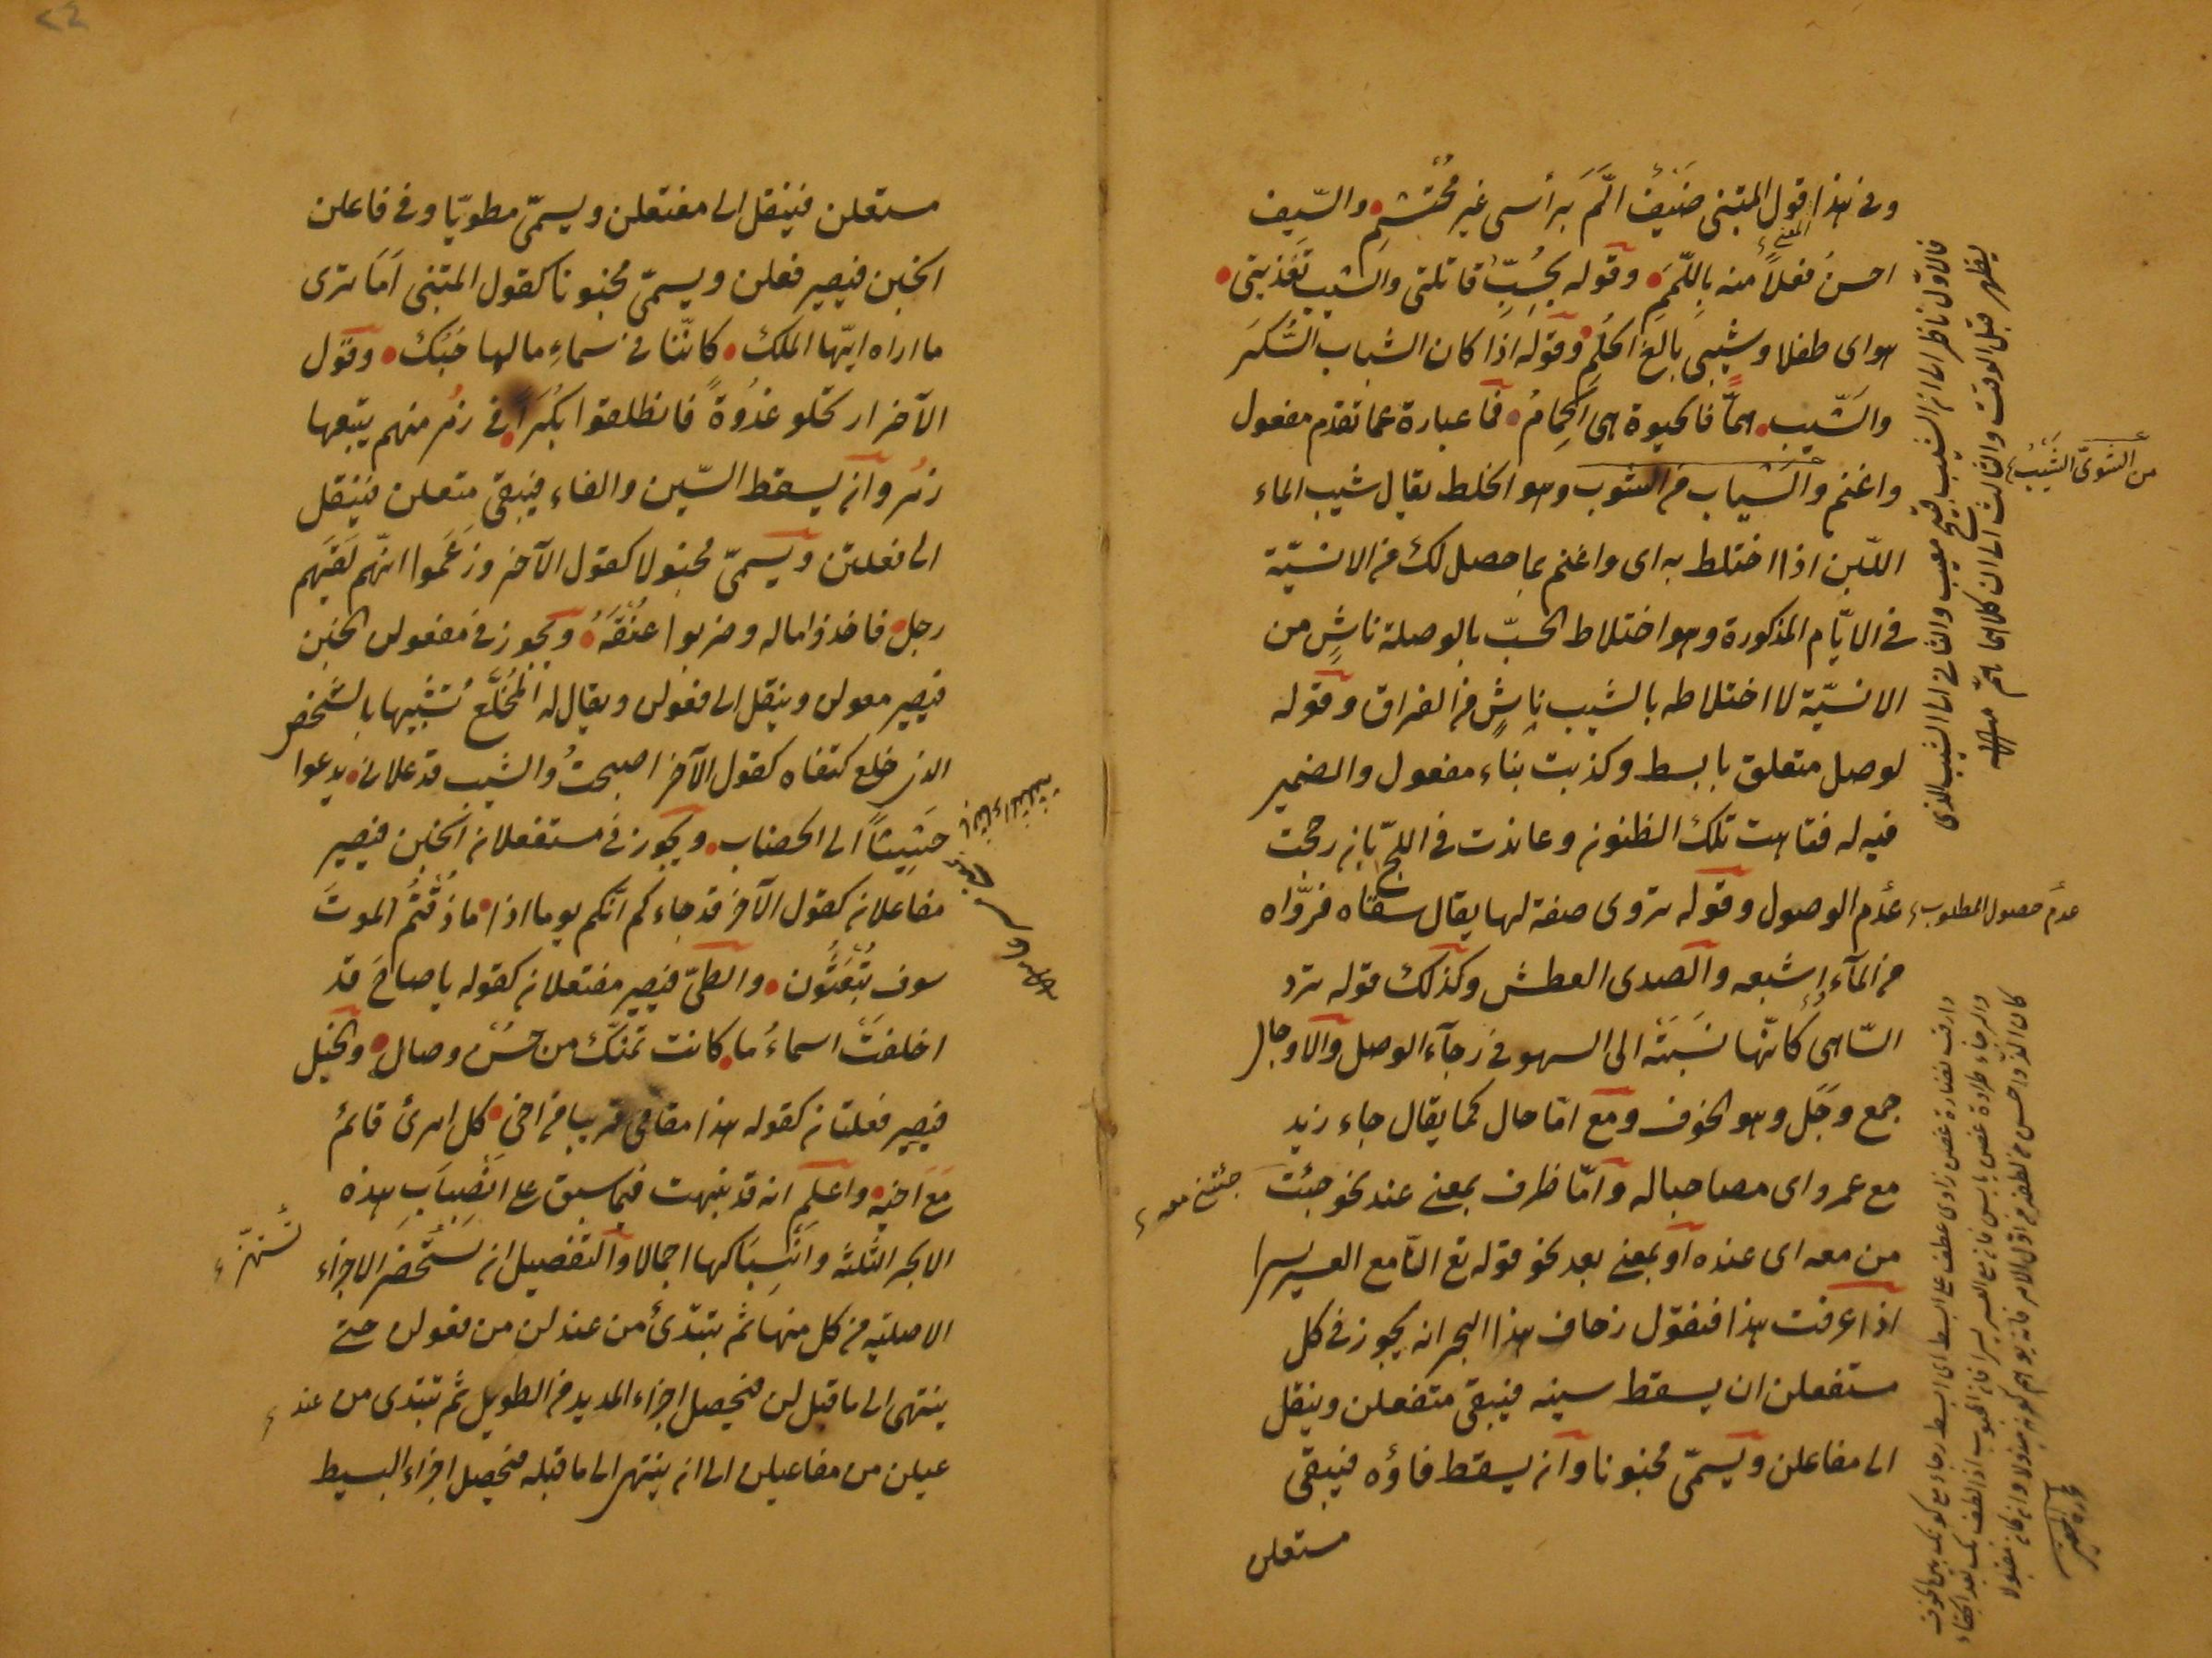 وفى هذا المعنى قول المتنبى ضَيْفٌ اَلَمَّ بَرأسى غير مُحْتَشِمِ والسّيف
احسنُ فعلاً منه بِاللِّمَمِ وقوله بحُبِّ قاتلتى والشيب تغذيتى
هواى طفلا وشيبى بالغ الحُلُمِ وقوله اذا كان الشباب السُّكرَ
والشَّيب همًّا فالحيوة هى الحِمامُ فما عبارة عما تقدم مفعول
واغنم والشياب من الشوب وهو الخلط يقال شيب الماء
اللّبن اذا اختلط به اى واغنم بما حصل لك من الانسيّة
فى الايّام المذكورة وهو اختلاط الحبّ بالوصلة ناشٍ من
الانسيّة لا اختلاطه بالشيب ناشٍ من الفراق وقوله
لوصل متعلق بابسط وكذبت بناء مفعول والضمير
فيه له فتاهت تلك الظنون وعاندت فى اللجّ بان رجحت
عدم الوصول وقوله تروى صفة لها يقال سقاه فروّاه
من المآء اشبعه والصدى العطش وكذلك قوله ترد
السّاهى كانّها نسَبَتْه الى السهو فى رجآء الوصل والاوجال
جمع وَجَل وهو الخوف ومع امّا حال كما يقال جاء زيد
مع عمرو اى مصاحبا له وامّا ظرف بمعنى عند نحو جئت
من معه اى عنده او بمعنى بعد نحو قوله تع انّ مع العسر يسرا
اذا عرفت هذا فنقول زحاف هذا البحر انه يجوز فى كل
مستفعلن ان يسقط سينه فيبقى متفعلن وينقل
الى مفاعلن ويسمّى مخبونا وان يسقط فاؤه فيبقى
مستعلن
من الشوى الشيب
عدم حصول المطلوب
جئتنى معه
فالاول ناظر الى ان الشيب قبيح معيب والثانى الى الشيب الذى
يظهر قبل الوقت والثالث الى ان كلاهما هم
مستعلن فينقل الى مفتعلن ويسمّى مطويّا وفى فاعلن
الخبن فيصير فعلن ويسمّى مخبونا كقول المتنبى اَمَا ترى
ما اراه ايّها الملك كانّنا فى سماءٍ ما لها حُبُك وقول
الآخر ارتحلوا غُدْوةً فانطلقوا بُكَرًا فى زمر منهم يتبعها
زمُر وان يسقط السّين والفاء فيبقى متعلن فينقل
الى فعلتن ويسمّى مخبولا كقول الآخر وزعَموا انّهم لَقيَهم
رجل فاخذوا ماله وضربوا عنُقَهُ ويجوز فى مفعولن الخبن
فيصير معولن وينقل الى فعولن ويقال له المُخَلَّع تشبيها بالشّخص
الذى خلع كتفاه كقول الآخر اصبحتُ والشيب قد علانى يدعوا
حَثِيثاً الى الخضاب ويجوز فى مستفعلان الخبن فيصير
مفاعلان كقول الآخر قد جاءكم انّكم يوما اذا ما ذُقْتُم الموتَ
سوف تُبْعَثُون والطىّ فيصير مفتعلان كقوله يا صاح قد
اخلفَتْ اسماءُ ما كانت تمنّيك من حسن وصال والخبل
فيصير فعلتان كقوله هذا مقامى قريبا من اخى كل امرئ قائمٌ
مَعَ اَخيه واعلم انه قد نبهت فيما سبق على انْصِبابِ هذه
الابحر الثلثة وانْسِبَاكها اجمالا والتفصيل ان تستحضر الاجزاء
الاصلية من كل منها ثم تبتدئ من عند لن من فعولن حتى
ينتهى الى ما قبل لن فيحصل اجزاء المديد من الطويل ثم تبتدى من عند
عيلن من مفاعيلن الى ان ينتهى الى ما قبله فيحصل اجزاء البسيط